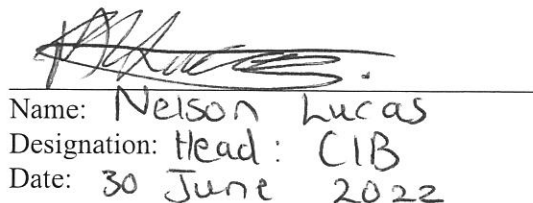 Name: Nelson Lucas
Designation: Head: CIB
Date: 30 June 2022